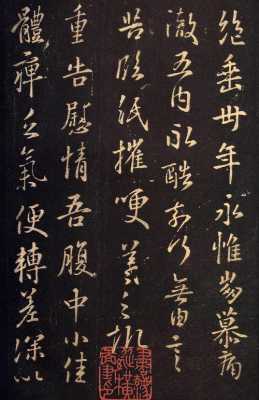 垂卅年永惟崩慕痛
徹五內永酷奈何無由言
告臨紙摧哽羲之報
重告慰情吾腹中小佳
體痺乏氣便轉差深以